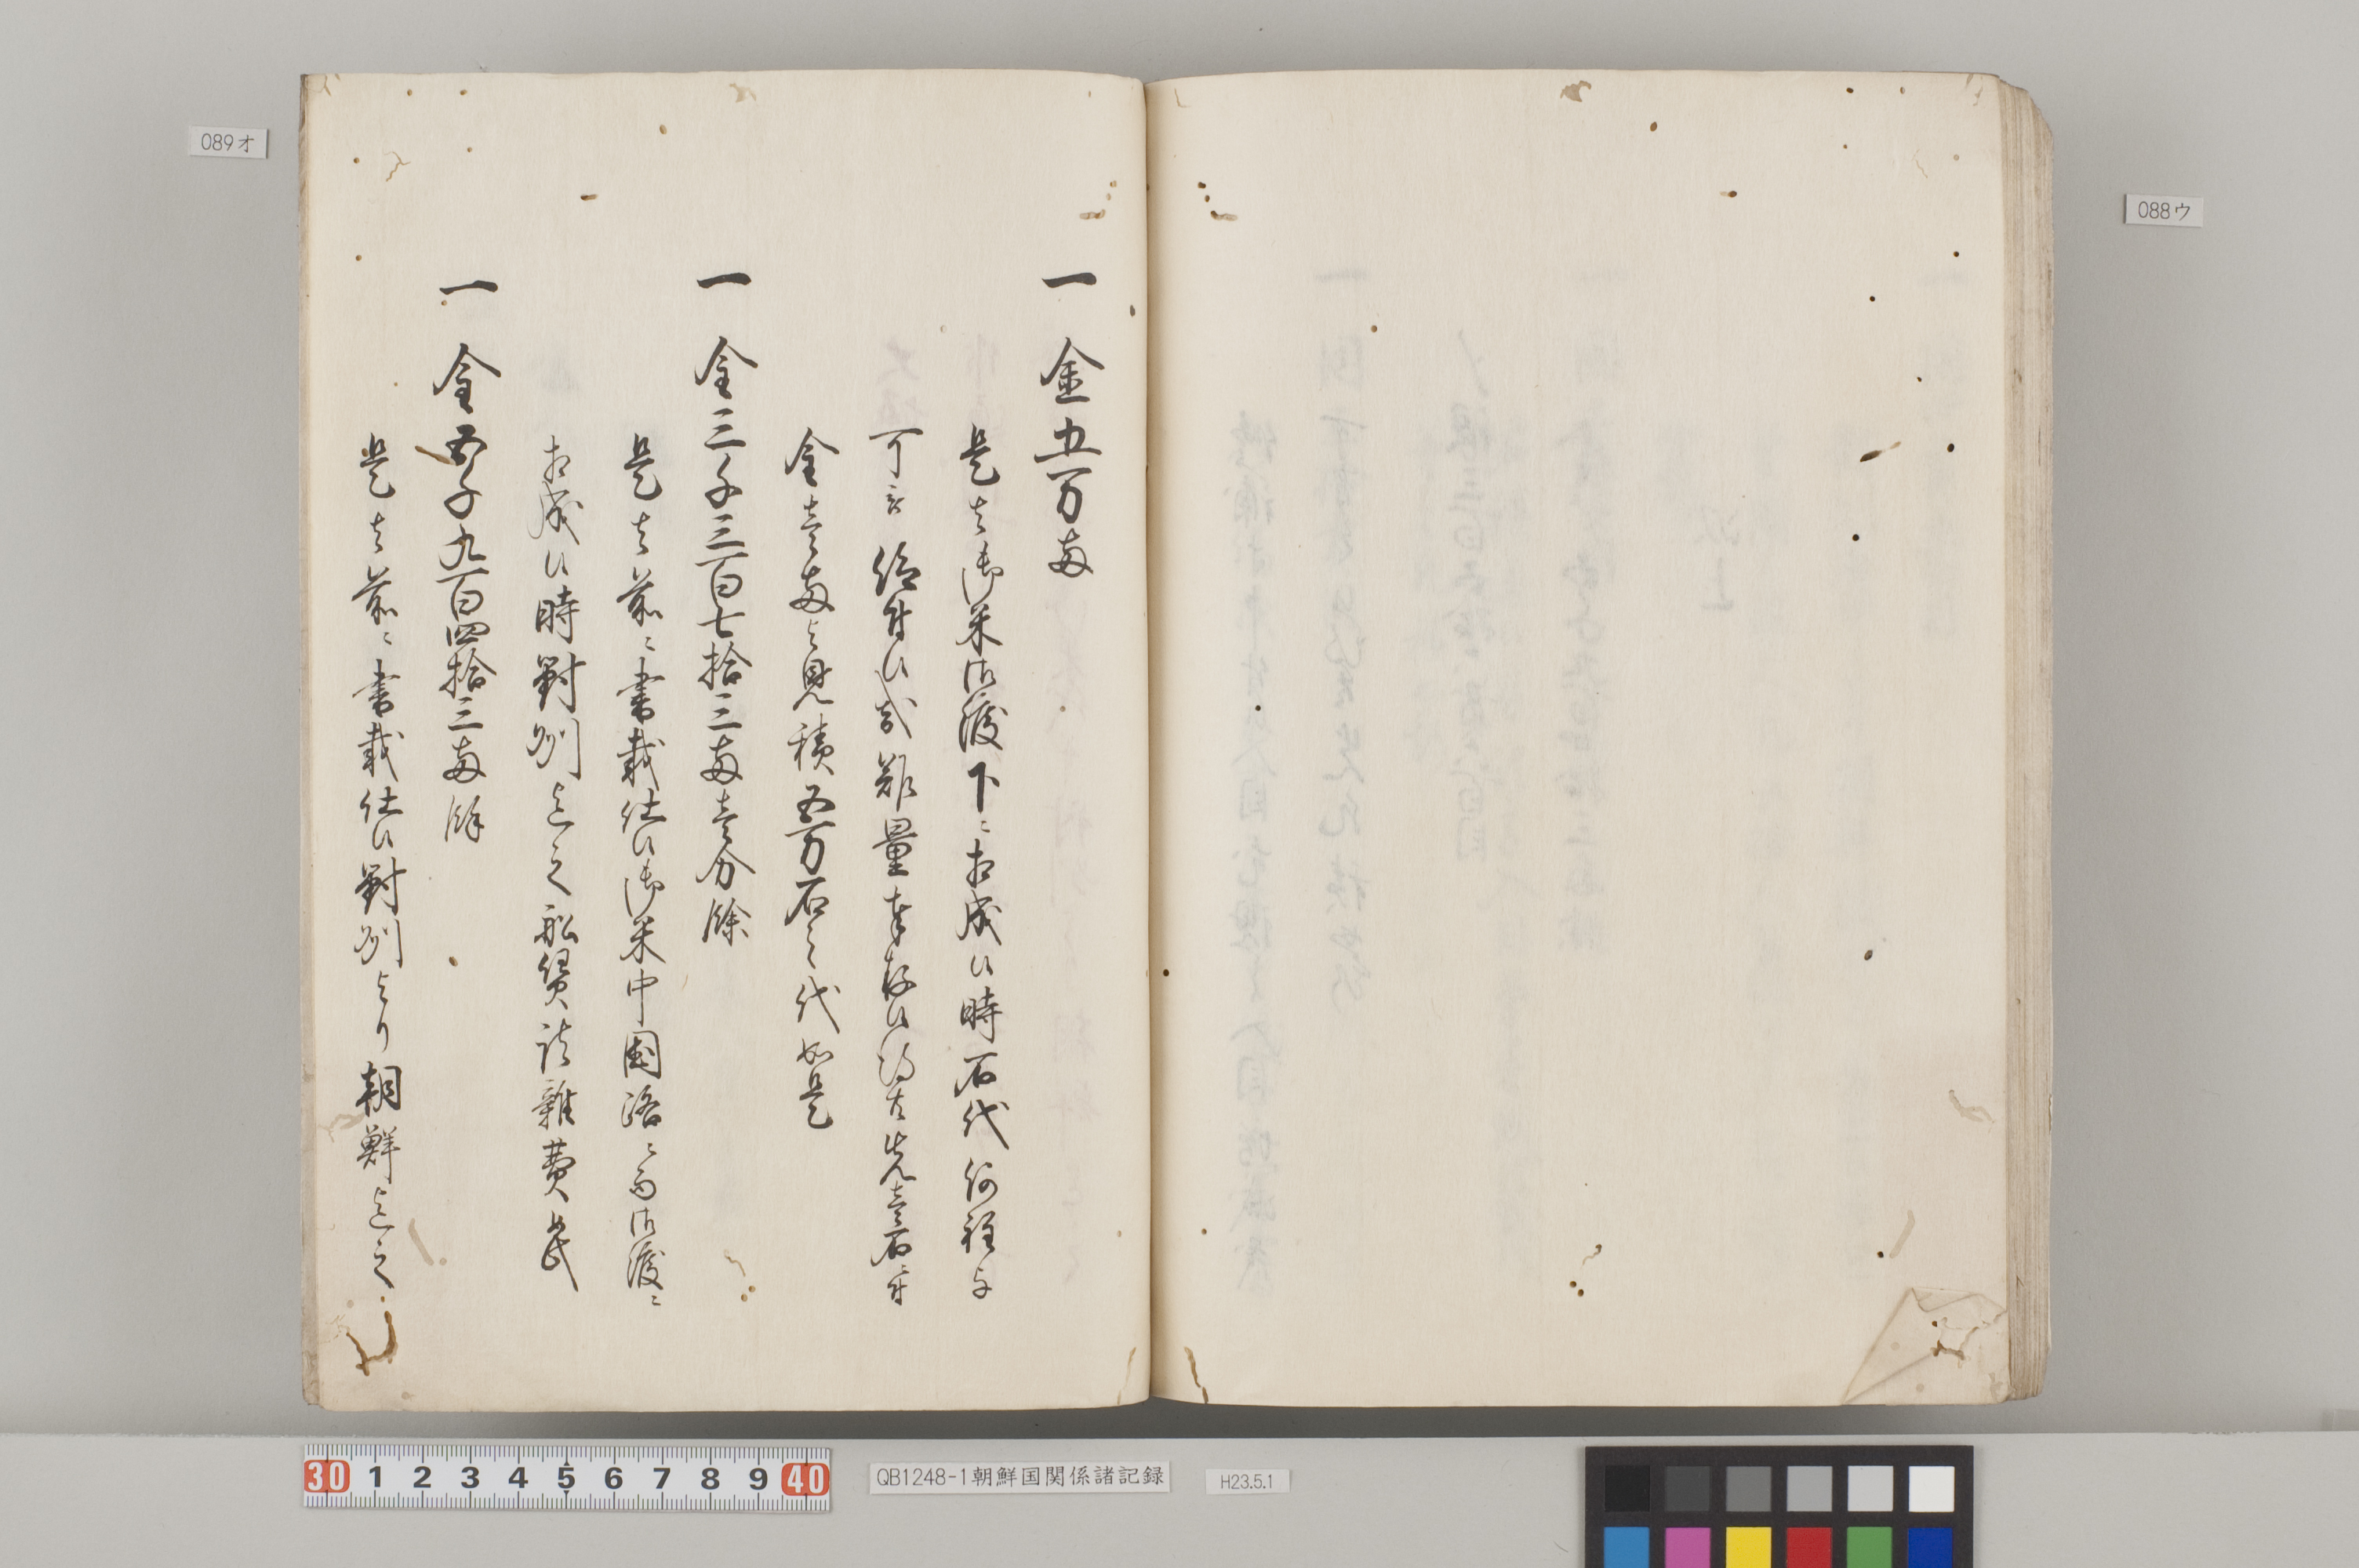 088ウ
089オ
一 金五万両
是者御米御渡下ニ相成候時石代何程与
可被 仰付候哉難量奉存候得共先壱石ニ付
金壱両与見積五万石之代如是
一 金三千三百七拾三両壱分余
是者前ニ書載仕候御米中国路ニ而御渡ニ
相成候時對州迄之船賃諸雑費
一 金五千九百四拾三両餘
是者前ニ書載仕候對州より朝鮮迄之
30 1 2 3 4 5 6 7 8 9 40
QB1248-1朝鮮国関係諸記録
H23.5.1